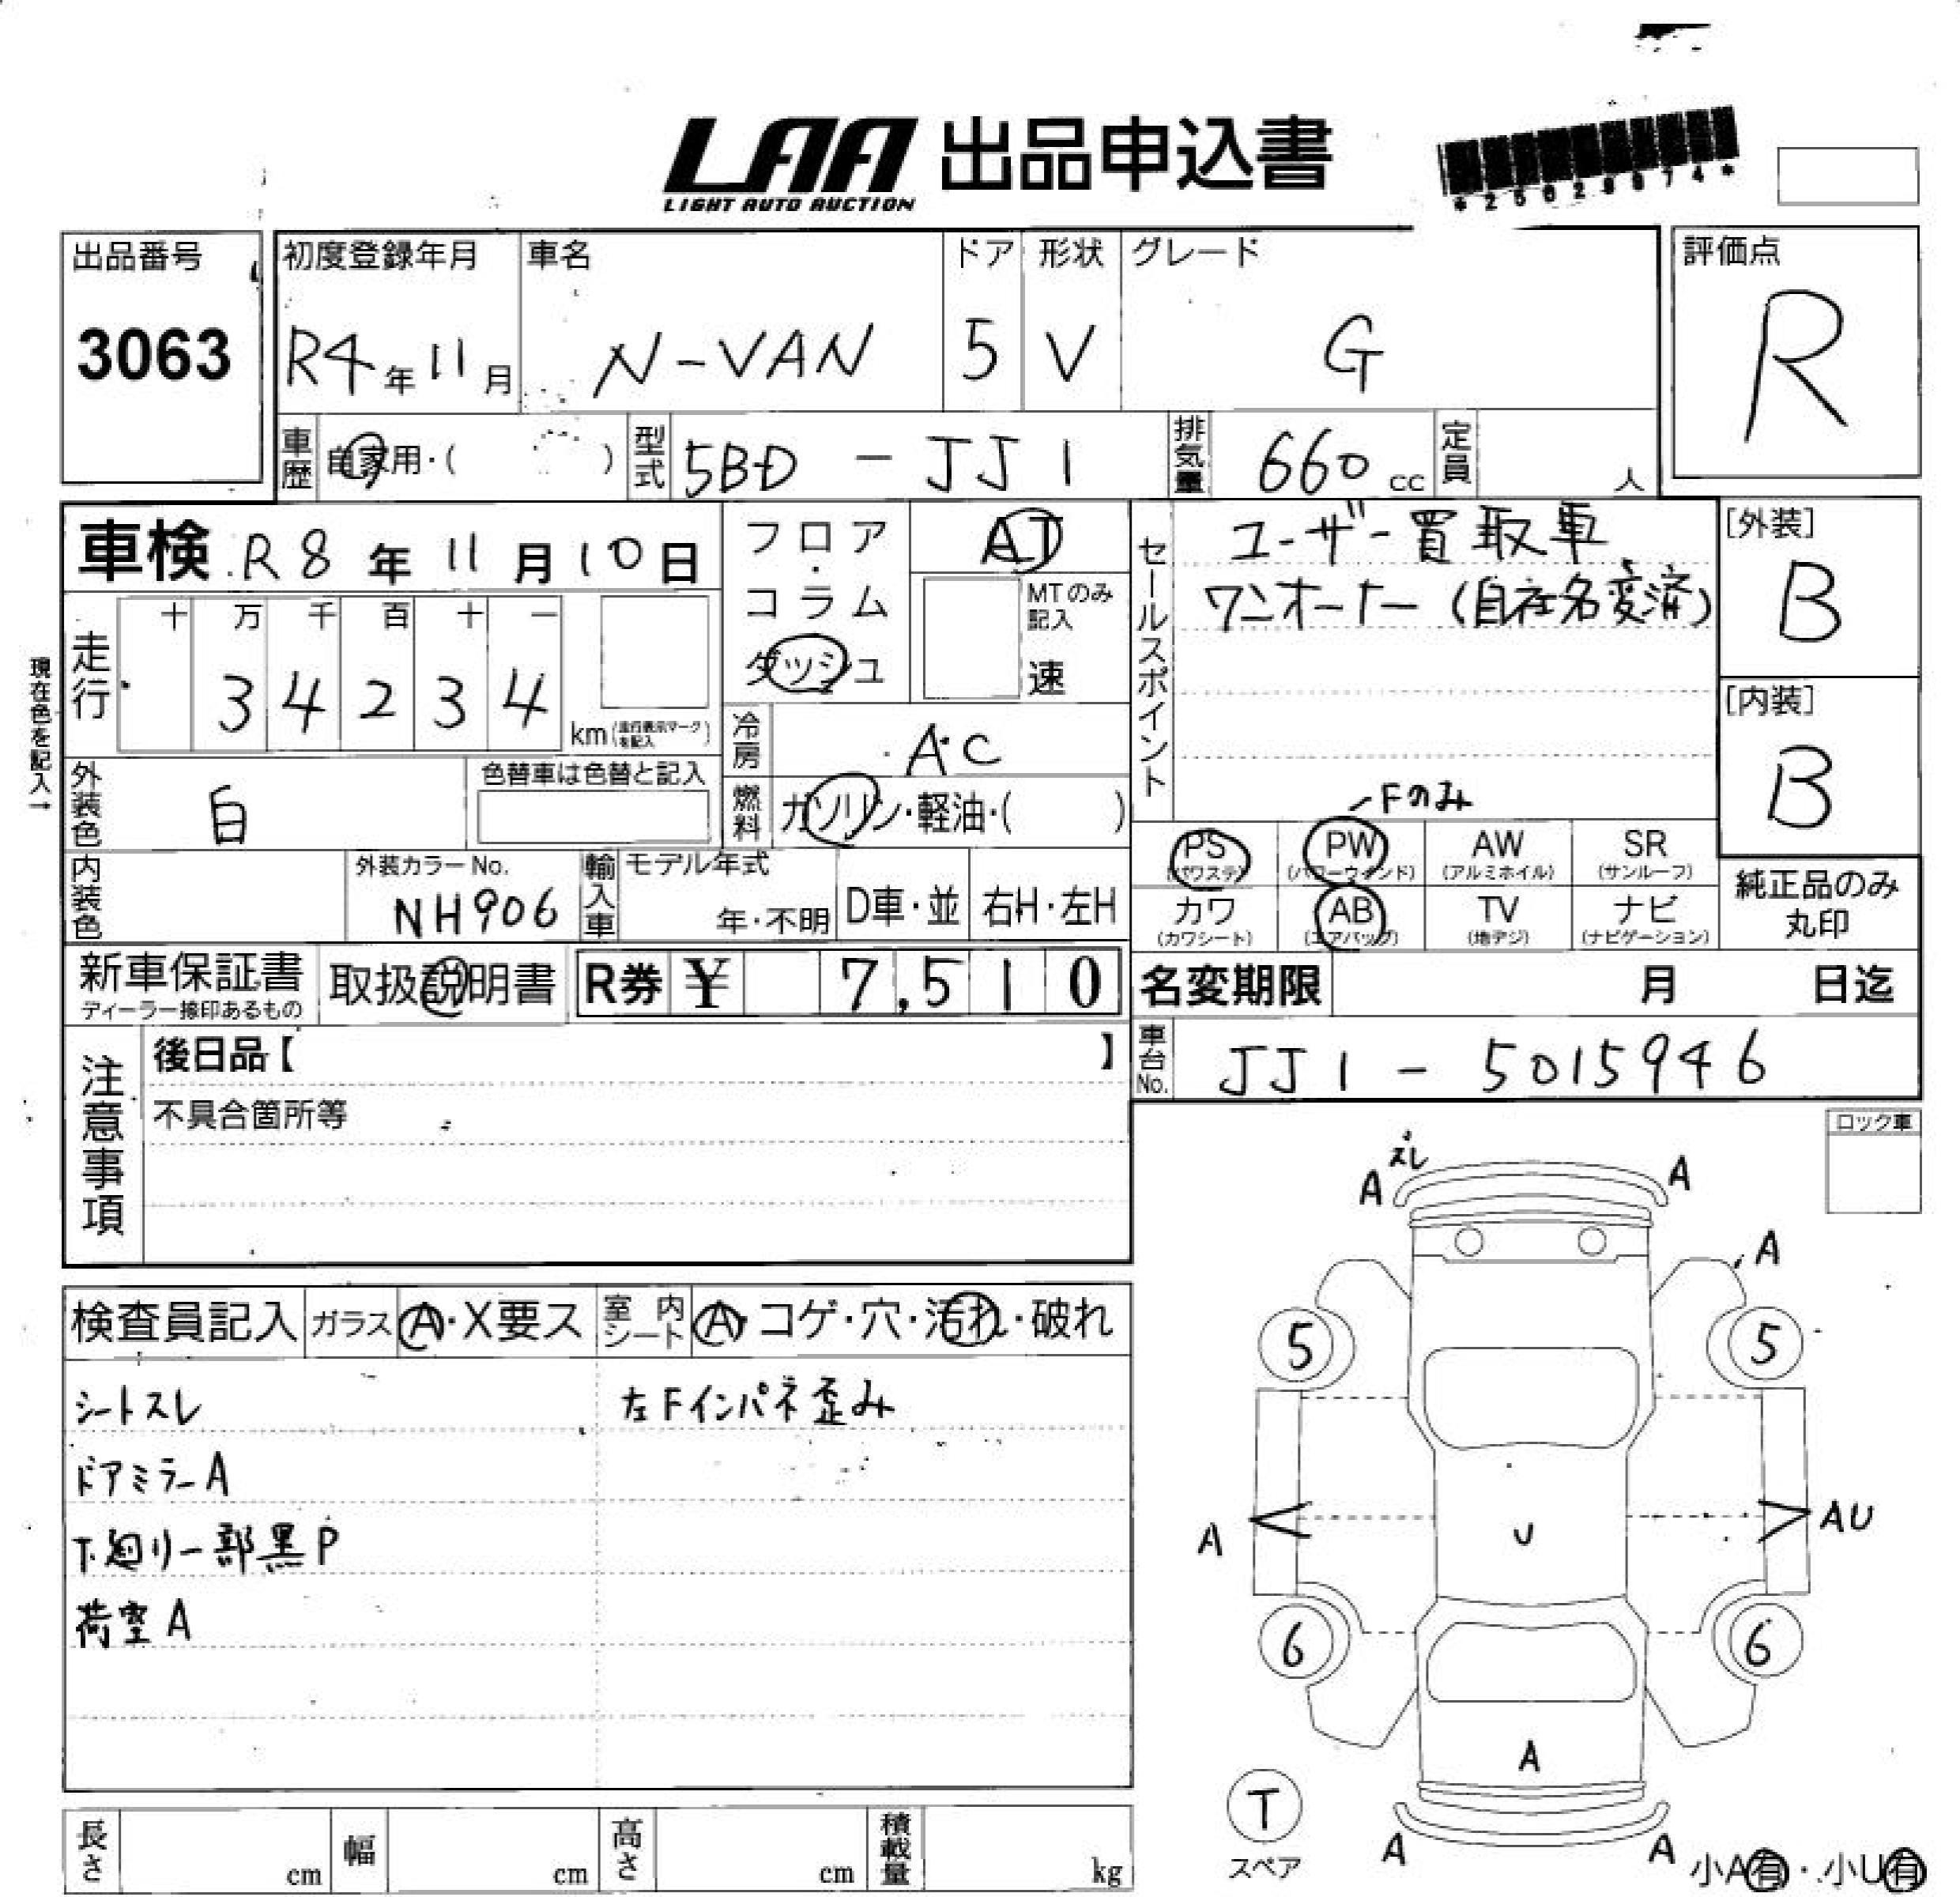 LAA 出品申込書
LIGHT AUTO AUCTION
出品番号
3063
初度登録年月
R4年11月
車名
N-VAN
ドア
5
形状
V
グレード
G
評価点
R
車歴
自家用・( )
型式
5BD - JJ1
排気量
660 cc
定員
人
車検 R8年11月10日
フロア・コラム
ダッシュ
AT
MTのみ記入
速
セールスポイント
ユーザー買取車
ワンオーナー(自社名変済)
[外装]
B
[内装]
B
現在色を記入→
走行
十 万 千 百 十 一
3 4 2 3 4
km(走行表示マークを記入)
冷房
A・C
外装色
白
色替車は色替と記入
燃料
ガソリン・軽油・( )
Fのみ
PS
(パワステ)
PW
(パワーウィンド)
AW
(アルミホイル)
SR
(サンルーフ)
カワ
(カワシート)
AB
(エアバッグ)
TV
(地デジ)
ナビ
(ナビゲーション)
純正品のみ
丸印
内装色
外装カラーNo.
NH906
輸入車
モデル年式
年・不明
D車・並
右H・左H
新車保証書
取扱説明書
R券 ¥ 7,510
名変期限 月 日迄
注意事項
後日品【 】
不具合箇所等
車台No.
JJ1 - 5015946
ロック車
検査員記入
ガラス
A・X要ス
室内シート
A・コゲ・穴・汚れ・破れ
シートスレ
左Fインパネ歪み
ドアミラーA
下廻り一部黒P
荷室A
ズレ
A
A
A
5
5
A
U
AU
6
6
A
T
スペア
A
A
小A有・小U有
長さ cm
幅 cm
高さ cm
積載量 kg